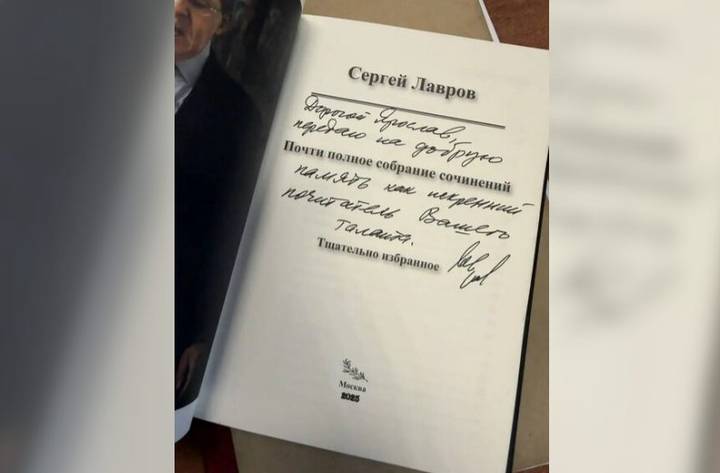 Сергей Лавров
Дорогой Ярослав,
передаю на добрую
Почти полное собрание сочинений
память как искренний
почитатель Вашего
таланта.
Тщательно избранное
Москва
2025